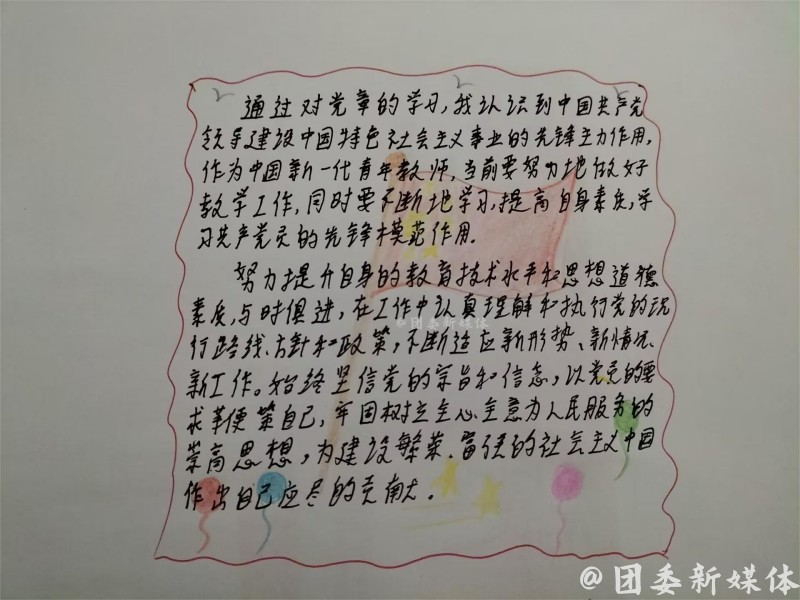 通过对党章的学习,我认识到中国共产党
领导建设中国特色社会主义事业的先锋主力作用,
作为中国新一代青年教师,当前要努力地做好
教学工作,同时要不断地学习,提高自身素质,学
习共产党员的先锋模范作用.
努力提升自身的教育技术水平和思想道德
素质,与时俱进,在工作中认真理解和执行党的现
行路线、方针和政策,不断适应新形势、新情况、
新工作。始终坚信党的宗旨和信念,以党员的要
求革便策自己,牢固树立全心全意为人民服务的
崇高思想,为建设繁荣、富强的社会主义中国
作出自己应尽的贡献。
@团委新媒体
@团委新媒体